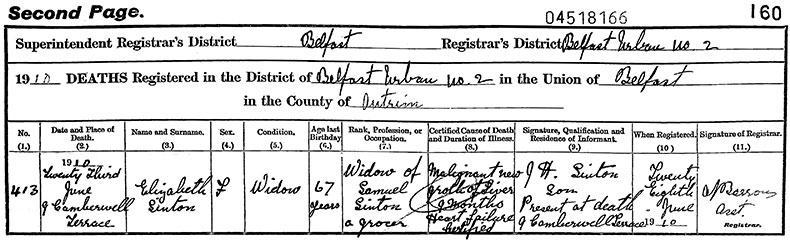 Second Page.
04518166
160
Superintendent Registrar's District Belfast Registrar's District Belfast Urban no. 2
1910 DEATHS Registered in the District of Belfast Urban no. 2 in the Union of Belfast
in the County of Antrim
No. (1.)
Date and Place of Death. (2.)
Name and Surname. (3.)
Sex. (4.)
Condition. (5.)
Age last Birthday (6.)
Rank, Profession, or Occupation. (7.)
Certified Cause of Death and Duration of Illness. (8.)
Signature, Qualification and Residence of Informant. (9.)
When Registered. (10.)
Signature of Registrar. (11.)
413
1910
Twenty third
June
9 Camberwell
Terrace
Elizabeth
Sinton
F
Widow
67
years
Widow of
Samuel
Sinton
a grocer
Malignant new
growth of Liver
9 months
Heart failure
Certified
J H. Sinton
Son
Present at death
9 Camberwell Terrace
Twenty
Eighth
June
1910
Barrows
Asst.
Registrar.